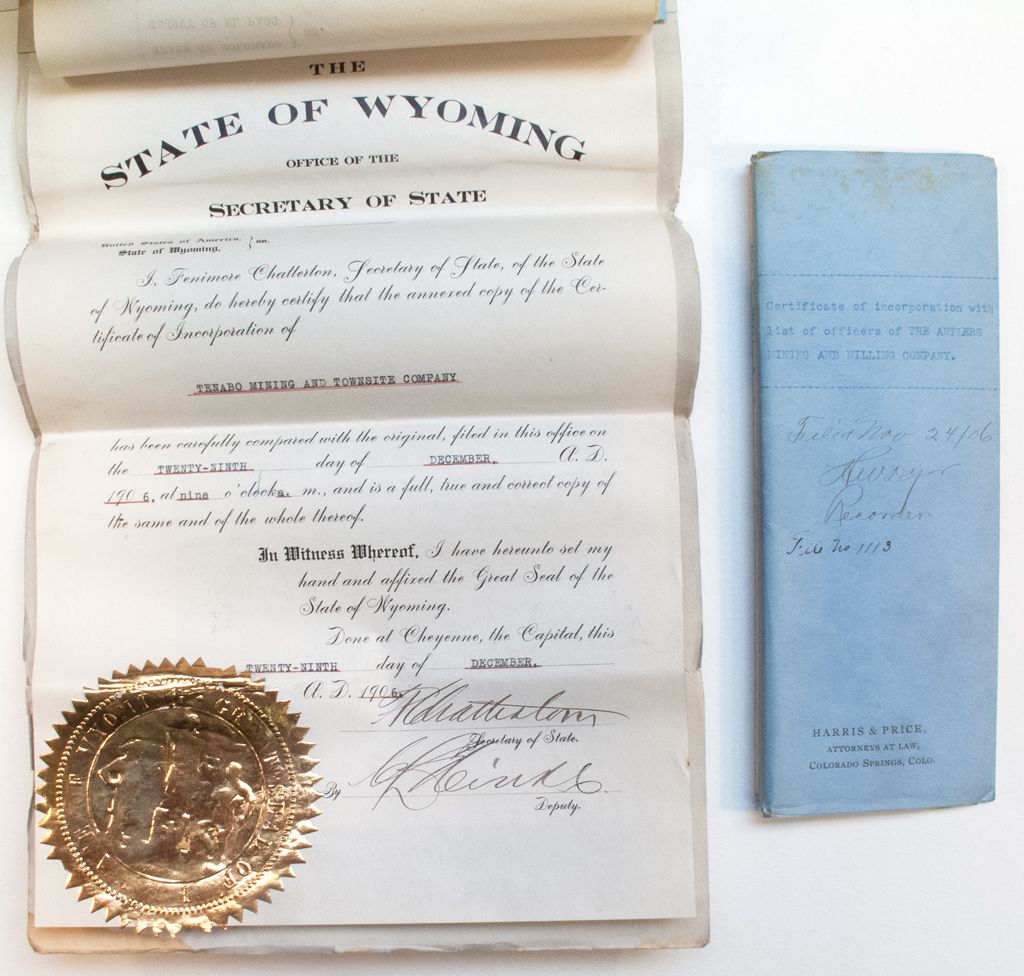 THE
STATE OF WYOMING
OFFICE OF THE
SECRETARY OF STATE
United States of America, } ss.
State of Wyoming.
I, Fenimore Chatterton, Secretary of State, of the State
of Wyoming, do hereby certify that the annexed copy of the Cer-
tificate of Incorporation of
TENABO MINING AND TOWNSITE COMPANY
has been carefully compared with the original, filed in this office on
the TWENTY-NINTH day of DECEMBER, A. D.
190 6, at nine o'clock a. m., and is a full, true and correct copy of
the same and of the whole thereof.
In Witness Whereof, I have hereunto set my
hand and affixed the Great Seal of the
State of Wyoming.
Done at Cheyenne, the Capital, this
TWENTY-NINTH day of DECEMBER,
A. D. 1906.
F Chatterton
Secretary of State.
By
Deputy.
Certificate of incorporation with
list of officers of THE ANTLERS
MINING AND MILLING COMPANY.
Filed Nov 24/06
Recorder
File No 1113
HARRIS & PRICE,
ATTORNEYS AT LAW,
COLORADO SPRINGS, COLO.